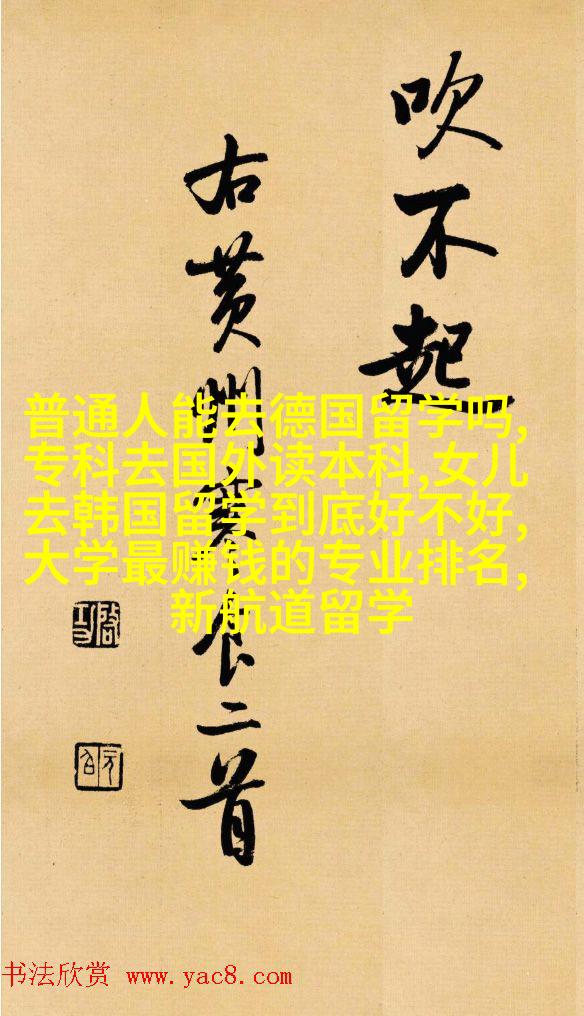 吹不起
右黄州寒食二首
启功
元白
普通人能去德国留学吗,
专科去国外读本科,女儿
去韩国留学到底好不好,
大学最赚钱的专业排名,
新航道留学
书法欣赏 www.yac8.com